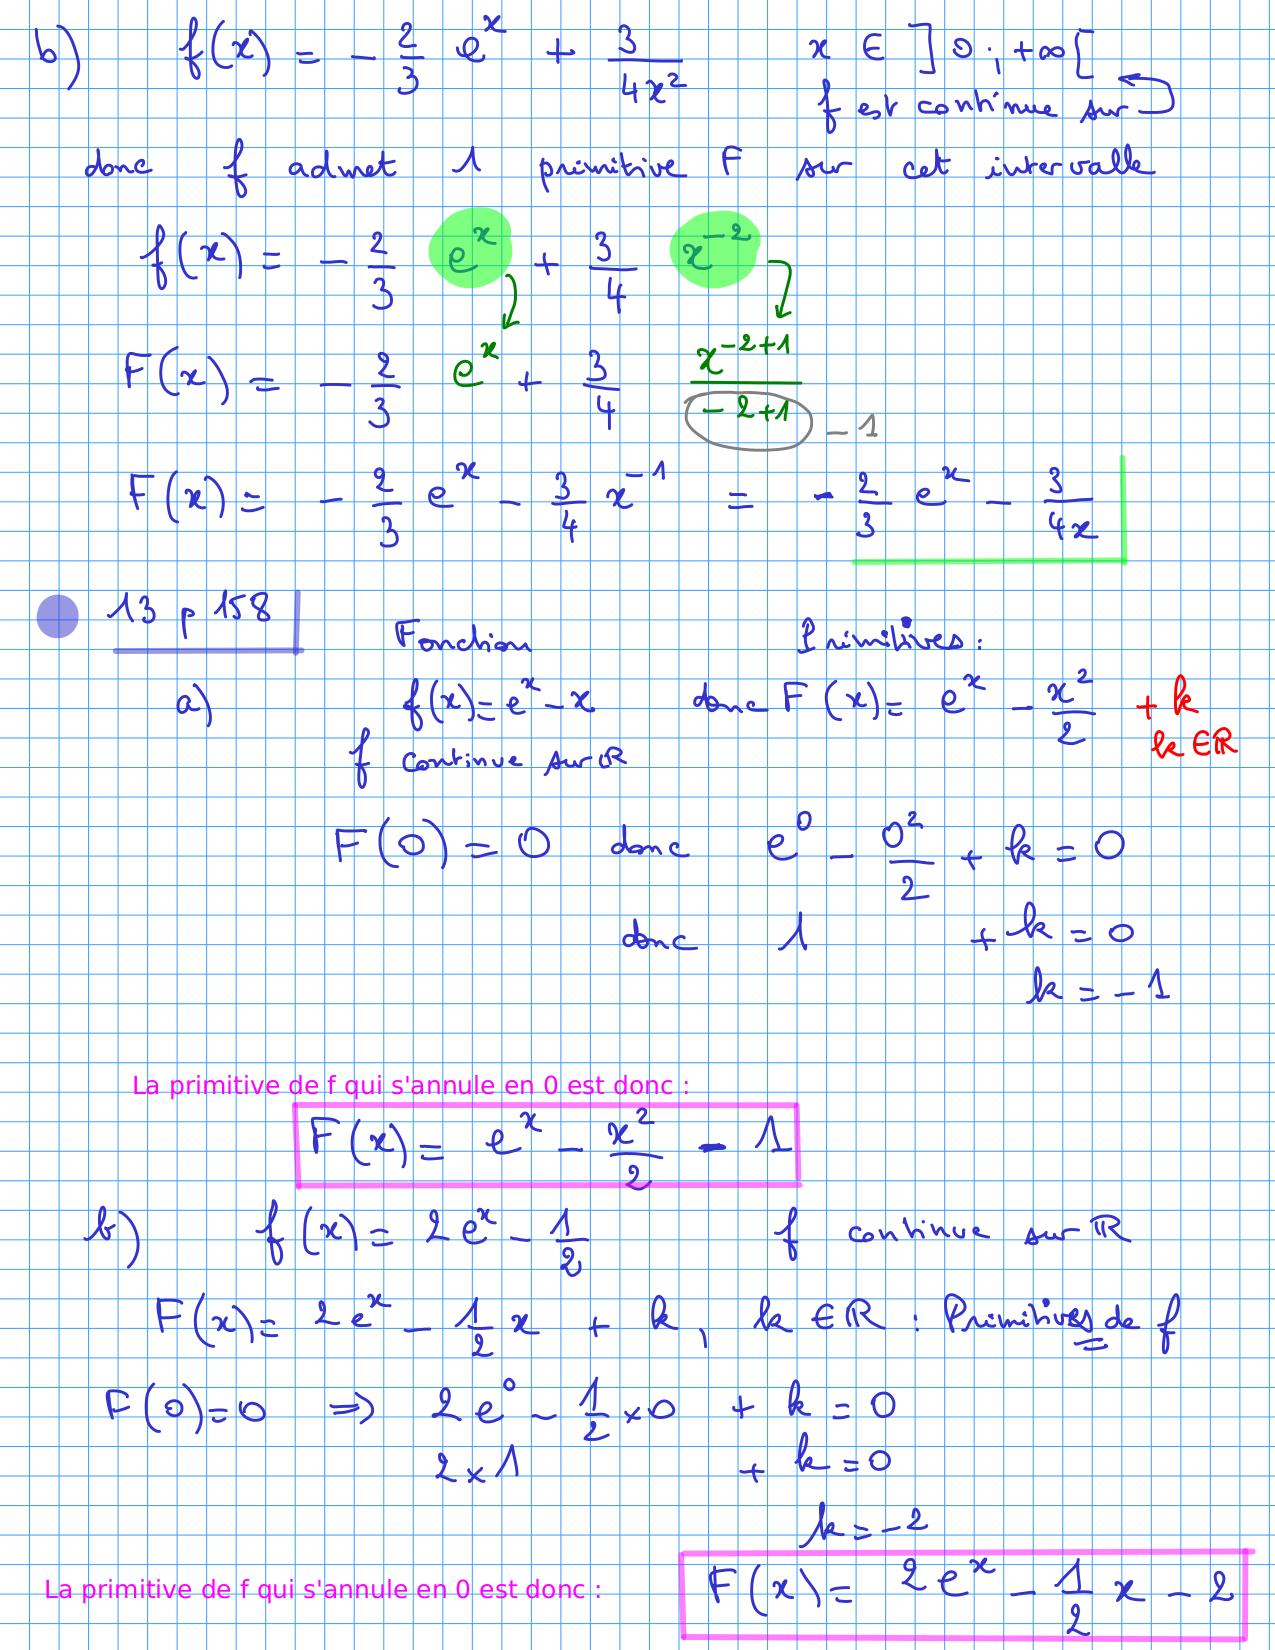 b) f(x) = - 2/3 e^x + 3/(4x²) x ∈ ]0 ; +∞[
f est continue sur
donc f admet 1 primitive F sur cet intervalle
f(x) = - 2/3 e^x + 3/4 x^(-2)
F(x) = - 2/3 e^x + 3/4 x^(-2+1)/(-2+1) -1
F(x) = - 2/3 e^x - 3/4 x^(-1) = - 2/3 e^x - 3/(4x)
13 p 158
Fonction Primitives :
a) f(x) = e^x - x donc F(x) = e^x - x²/2 + k
k ∈ ℝ
f continue sur ℝ
F(0) = 0 donc e^0 - 0²/2 + k = 0
donc 1 + k = 0
k = -1
La primitive de f qui s'annule en 0 est donc :
F(x) = e^x - x²/2 - 1
b) f(x) = 2e^x - 1/2 f continue sur ℝ
F(x) = 2e^x - 1/2 x + k, k ∈ ℝ : Primitives de f
F(0) = 0 ⇒ 2e^0 - 1/2 × 0 + k = 0
2 × 1 + k = 0
k = -2
La primitive de f qui s'annule en 0 est donc :
F(x) = 2e^x - 1/2 x - 2